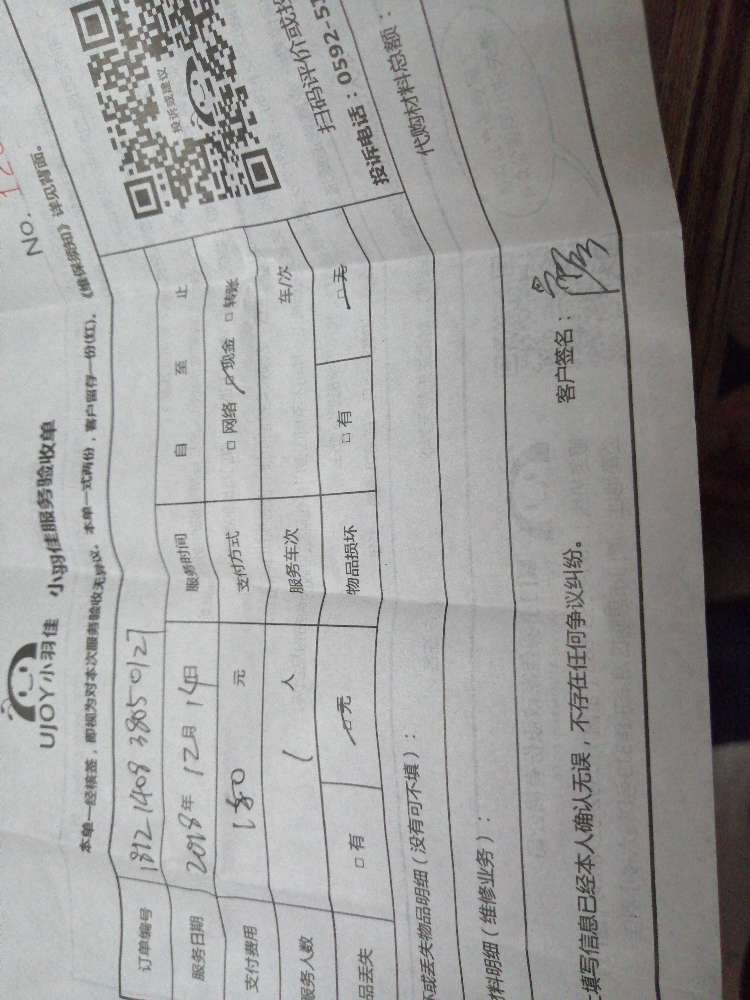 UJOY小羽佳 小羽佳服务验收单
NO. 120
本单一经核签，即视为对本次服务验收无异议。本单一式两份，客户留存一份(红)。《维保须知》详见背面。
订单编号 1812140838050127
服务日期 2018年12月14日 服务时间 自 至 止
支付费用 180 元 支付方式 □网络 □现金 □转账
服务人数 1 人 服务车次 车/次
品丢失 □有 □无 物品损坏 □有 □无
投诉或建议
扫码评价或投
投诉电话：0592-51
坏或丢失物品明细（没有可不填）：
代购材料总额：
材料明细（维修业务）：
填写信息已经本人确认无误，不存在任何争议纠纷。
客户签名：